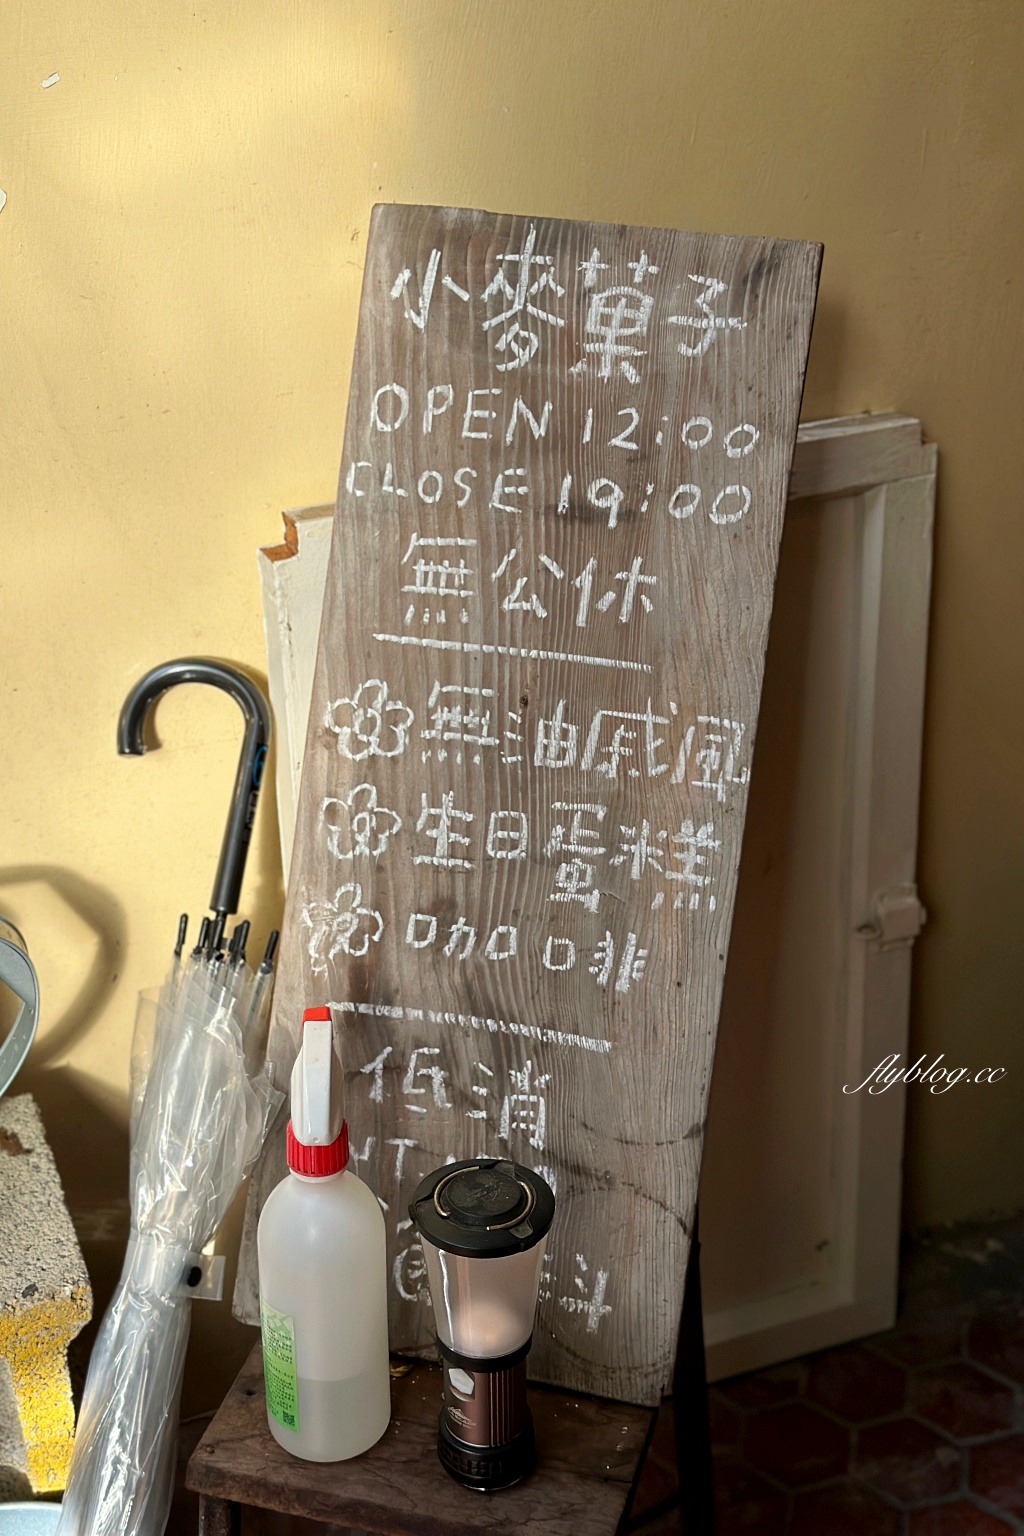 小麥菓子
OPEN 12:00
CLOSE 19:00
無公休
無油戚風
生日蛋糕
咖啡
低消
flyblog.cc